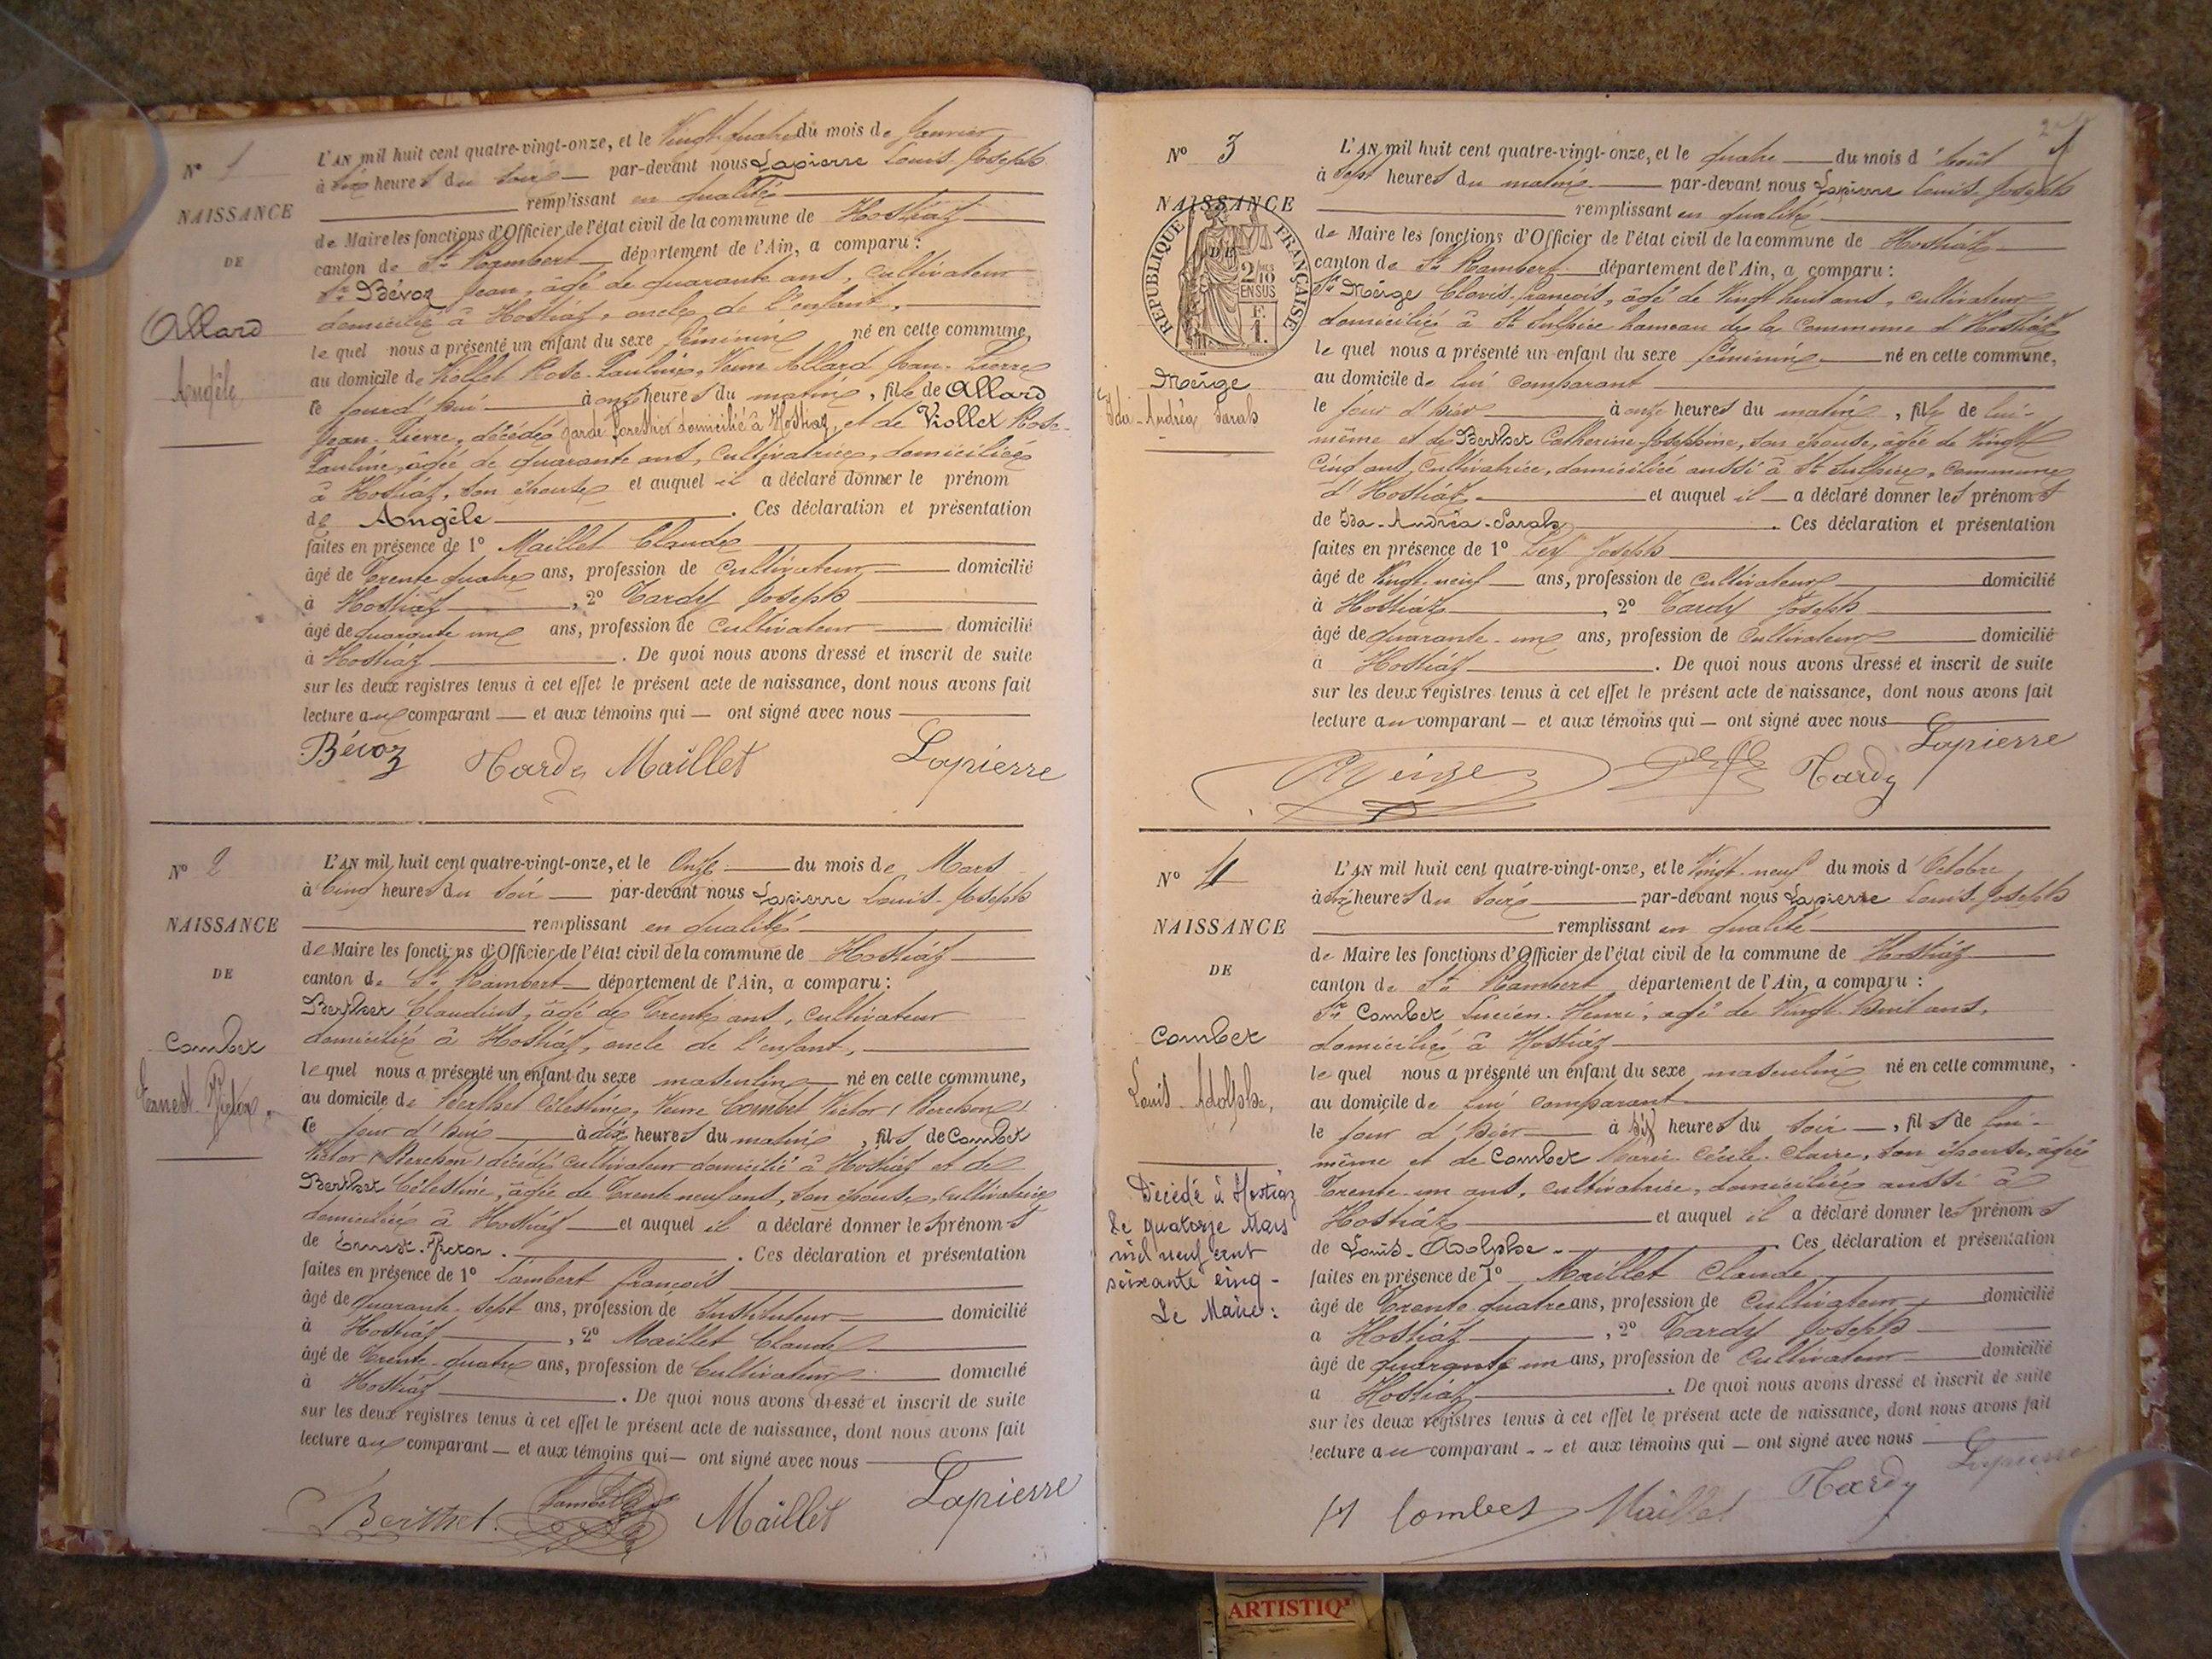 N° 1
NAISSANCE
DE
Allard
Angèle
L'AN mil huit cent quatre-vingt-onze, et le Vingt quatre du mois de Janvier
à six heures du soir — par-devant nous Lapierre Louis-Joseph
remplissant en qualité
de Maire les fonctions d'Officier de l'état civil de la commune de Hostiaz
canton de St Rambert département de l'Ain, a comparu :
Sr Bévoz Jean, âgé de quarante ans, cultivateur
domicilié à Hostiaz, oncle de l'enfant,
lequel nous a présenté un enfant du sexe féminin né en cette commune,
au domicile de Viollet Rose-Pauline, Veuve Allard Jean-Pierre
ce jourd'hui à onze heures du matin, fille de Allard
Jean-Pierre, décédé garde forestier domicilié à Hostiaz, et de Viollet Rose-
Pauline, âgée de quarante ans, cultivatrice, domiciliée
à Hostiaz, son épouse et auquel il a déclaré donner le prénom
de Angèle . Ces déclaration et présentation
faites en présence de 1° Maillet Claude
âgé de Trente quatre ans, profession de Cultivateur domicilié
à Hostiaz , 2° Tardy Joseph
âgé de quarante un ans, profession de Cultivateur domicilié
à Hostiaz . De quoi nous avons dressé et inscrit de suite
sur les deux registres tenus à cet effet le présent acte de naissance, dont nous avons fait
lecture au comparant — et aux témoins qui — ont signé avec nous
Bévoz Tardy Maillet Lapierre
N° 2
NAISSANCE
DE
Combet
Ernest Victor
L'AN mil huit cent quatre-vingt-onze, et le Onze du mois de Mars
à Cinq heures du soir — par-devant nous Lapierre Louis-Joseph
remplissant en qualité
de Maire les fonctions d'Officier de l'état civil de la commune de Hostiaz
canton de St Rambert département de l'Ain, a comparu :
Berthet Claudius, âgé de Trente ans, cultivateur
domicilié à Hostiaz, oncle de l'enfant,
lequel nous a présenté un enfant du sexe masculin né en cette commune,
au domicile de Berthet Célestine, Veuve Combet Victor (Berchon)
ce jour d'hui à dix heures du matin, fils de Combet
Victor (Berchon) décédé cultivateur domicilié à Hostiaz et de
Berthet Célestine, âgée de Trente neuf ans, son épouse, cultivatrice
domiciliée à Hostiaz — et auquel il a déclaré donner les prénoms
de Ernest-Victor . Ces déclaration et présentation
faites en présence de 1° Lambert François
âgé de quarante-sept ans, profession de Instituteur domicilié
à Hostiaz , 2° Maillet Claude
âgé de Trente-quatre ans, profession de Cultivateur domicilié
à Hostiaz . De quoi nous avons dressé et inscrit de suite
sur les deux registres tenus à cet effet le présent acte de naissance, dont nous avons fait
lecture au comparant — et aux témoins qui — ont signé avec nous
Berthet. Lambert Maillet Lapierre
N° 3
NAISSANCE
DE
RÉPUBLIQUE FRANÇAISE
2/10 EN SUS
F. 1.
Meige
Ida-Andréa Sarah
L'AN mil huit cent quatre-vingt-onze, et le quatre du mois d'Août
à sept heures du matin par-devant nous Lapierre Louis-Joseph
remplissant en qualité
de Maire les fonctions d'Officier de l'état civil de la commune de Hostiaz
canton de St Rambert département de l'Ain, a comparu :
Sr Meige Clovis-François, âgé de Vingt huit ans, cultivateur
domicilié à St Sulpice hameau de la Commune d'Hostiaz
lequel nous a présenté un enfant du sexe féminin né en cette commune,
au domicile de lui comparant
le jour d'hier à onze heures du matin, fille de lui-
même et de Berthet Catherine-Joséphine, son épouse, âgée de Vingt
Cinq ans, cultivatrice, domiciliée aussi à St Sulpice, Commune
d'Hostiaz et auquel il a déclaré donner les prénoms
de Ida-Andréa-Sarah . Ces déclaration et présentation
faites en présence de 1° Joseph
âgé de Vingt-neuf ans, profession de Cultivateur domicilié
à Hostiaz , 2° Tardy Joseph
âgé de quarante-un ans, profession de Cultivateur domicilié
à Hostiaz . De quoi nous avons dressé et inscrit de suite
sur les deux registres tenus à cet effet le présent acte de naissance, dont nous avons fait
lecture au comparant — et aux témoins qui — ont signé avec nous
Meige Tardy Lapierre
N° 4
NAISSANCE
DE
Combet
Louis-Adolphe,
Décédé à Hostiaz
le quatorze Mars
mil neuf cent
soixante cinq -
Le Maire :
L'AN mil huit cent quatre-vingt-onze, et le Vingt-neuf du mois d'Octobre
à six heures du soir par-devant nous Lapierre Louis-Joseph
remplissant en qualité
de Maire les fonctions d'Officier de l'état civil de la commune de Hostiaz
canton de St Rambert département de l'Ain, a comparu :
Sr Combet Lucien-Henri, âgé de Vingt-huit ans,
domicilié à Hostiaz
lequel nous a présenté un enfant du sexe masculin né en cette commune,
au domicile de lui comparant
le jour d'hier à six heures du soir —, fils de lui-
même et de Combet Marie-Cécile-Claire, son épouse, âgée
Trente-un ans, cultivatrice, domiciliée aussi à
Hostiaz et auquel il a déclaré donner les prénoms
de Louis-Adolphe . Ces déclaration et présentation
faites en présence de 1° Maillet Claude
âgé de Trente quatre ans, profession de Cultivateur domicilié
à Hostiaz , 2° Tardy Joseph
âgé de quarante un ans, profession de Cultivateur domicilié
à Hostiaz . De quoi nous avons dressé et inscrit de suite
sur les deux registres tenus à cet effet le présent acte de naissance, dont nous avons fait
lecture au comparant — et aux témoins qui — ont signé avec nous
Combet Maillet Tardy Lapierre
ARTISTIQ